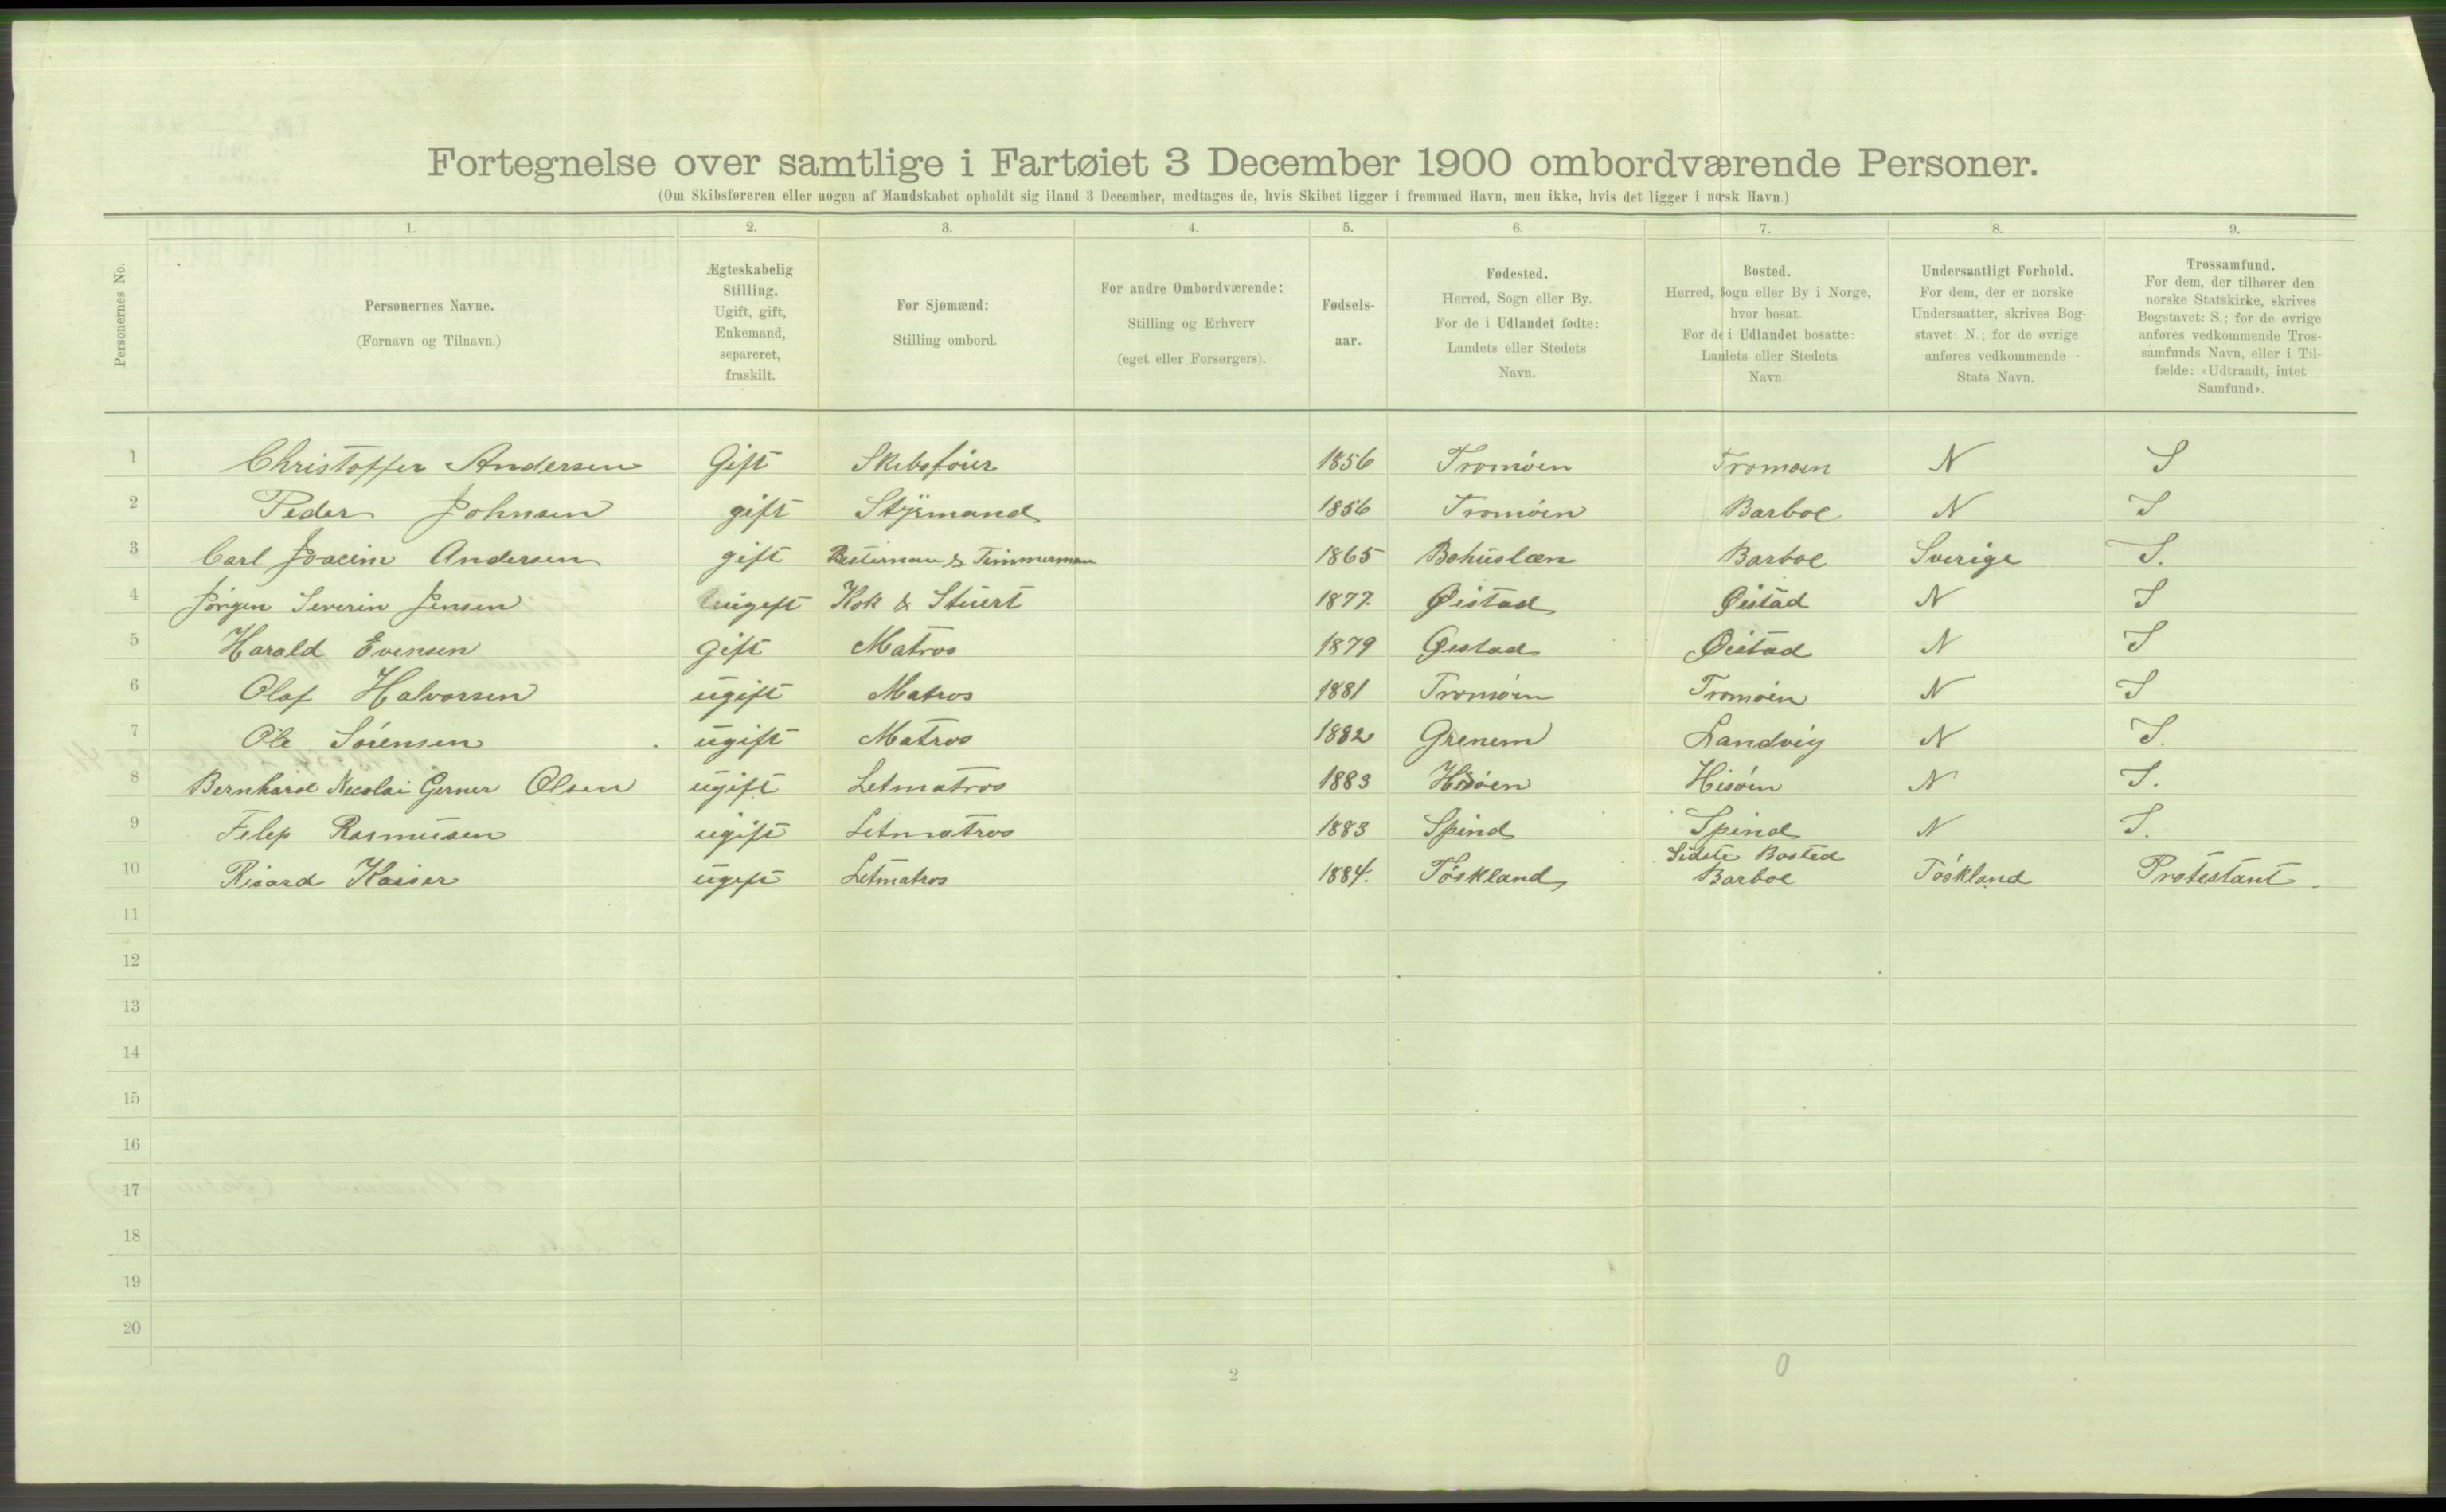 Fortegnelse over samtlige i Fartøiet 3 December 1900 ombordværende Personer.
(Om Skibsføreren eller nogen af Mandskabet opholdt sig iland 3 December, medtages de, hvis Skibet ligger i fremmed Havn, men ikke, hvis det ligger i norsk Havn.)
Personernes No.
1. 2. 3. 4. 5. 6. 7. 8. 9.
Personernes Navne.
(Fornavn og Tilnavn.)
Ægteskabelig
Stilling.
Ugift, gift,
Enkemand,
separeret,
fraskilt.
For Sjømænd:
Stilling ombord.
For andre Ombordværende:
Stilling og Erhverv
(eget eller Forsørgers).
Fødsels-
aar.
Fødested.
Herred, Sogn eller By.
For de i Udlandet fødte:
Landets eller Stedets
Navn.
Bosted.
Herred, Sogn eller By i Norge,
hvor bosat.
For de i Udlandet bosatte:
Landets eller Stedets
Navn.
Undersaatligt Forhold.
For dem, der er norske
Undersaatter, skrives Bog-
stavet: N.; for de øvrige
anføres vedkommende
Stats Navn.
Trossamfund.
For dem, der tilhører den
norske Statskirke, skrives
Bogstavet: S.; for de øvrige
anføres vedkommende Tros-
samfunds Navn, eller i Til-
fælde: «Udtraadt, intet
Samfund».
1 Christoffer Andersen Gift Skibsfóier 1856 Tromóen Tromoen N S
2 Peder Johnsen gift Styrmand 1856 Tromóen Barboe N S
3 Carl Joacim Andersen gift Besteman & Timmerman 1865 Bohuslæn Barboe Sverige S.
4 Jórgen Severin Jensen ugift Kok & Stuert 1877. Øistad Øistad N S
5 Harald Evensen gift Matros 1879 Øestad Øistad N S
6 Olaf Halvorsen ugift Matros 1881 Tromóen Tromóen N S
7 Ole Sórensen ugift Matros 1882 Grenem Landvig N S.
8 Bernhard Necolai Gerner Olsen ugift Letmatros 1883 Hisóen Hisóen N S.
9 Felep Rasmusen ugift Letmatros 1883 Spind Spind N S.
Sidste Bosted
10 Risard Kaiser ugift Letmatros 1884. Tóskland Barboe Tóskland Protestant.
11
12
13
14
15
16
17
18
19
20
2
0